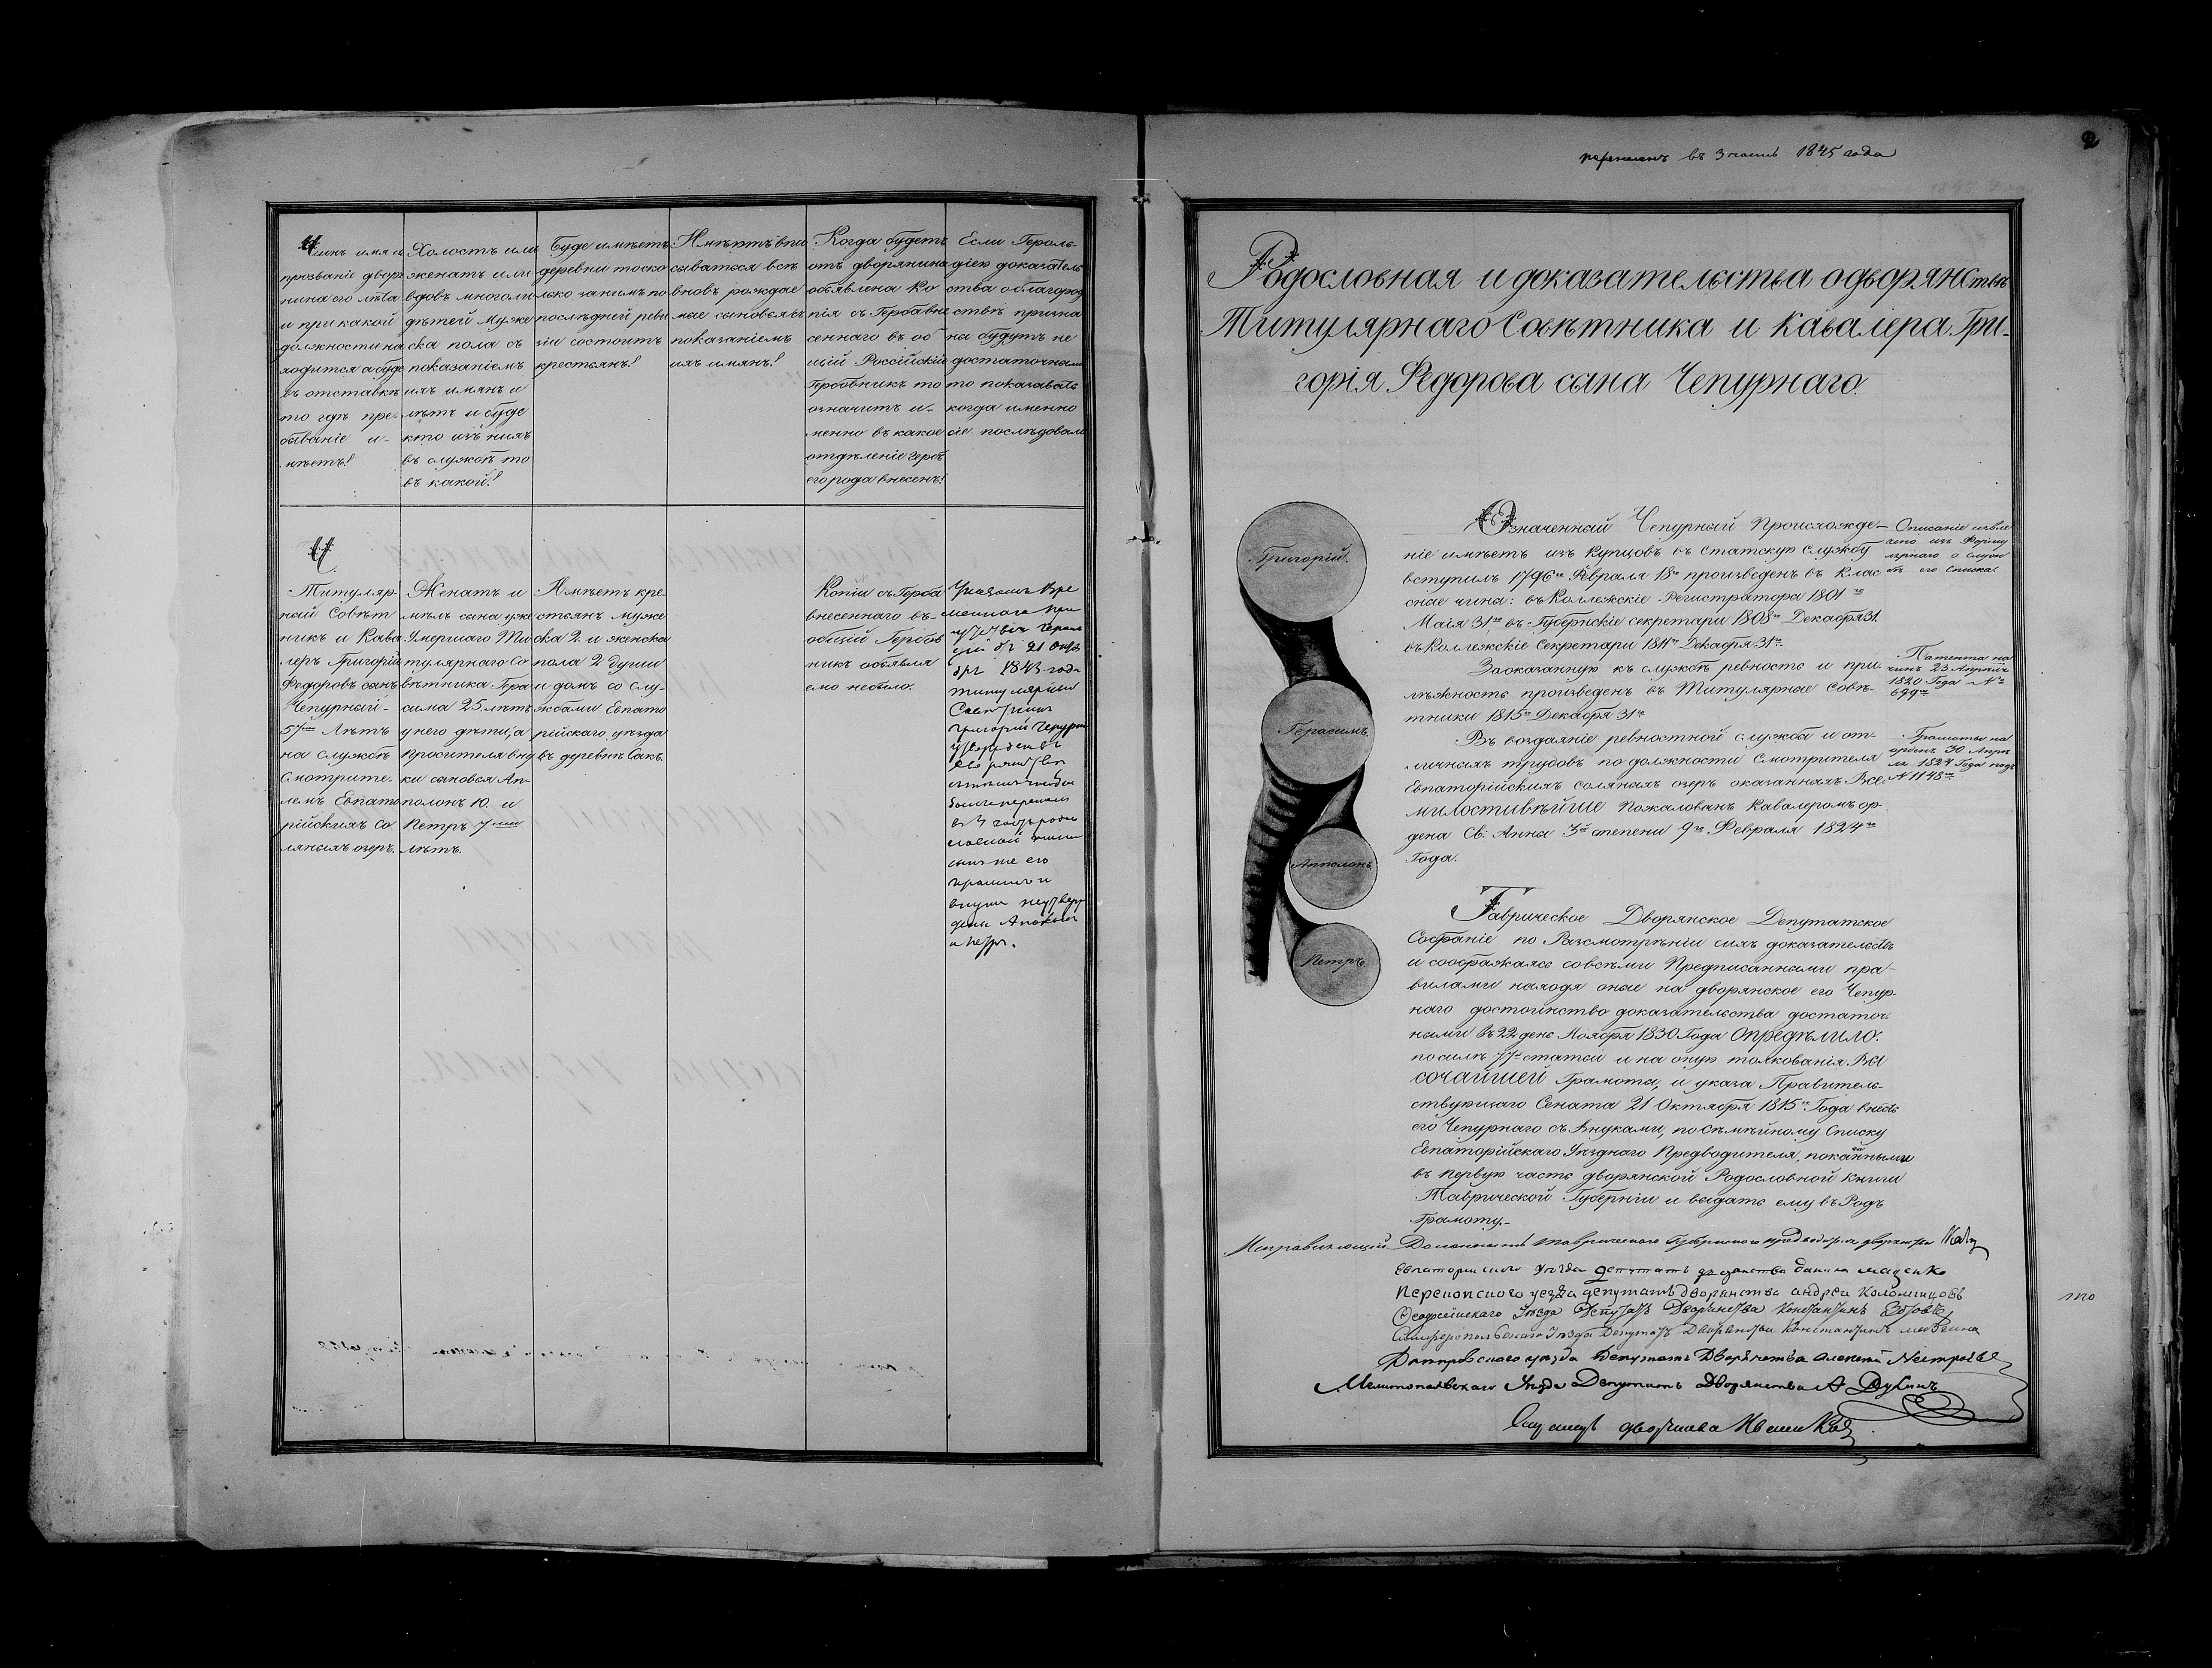 Чинъ имя и
прозваніе дворя
нина его лѣта
и при какой
должности на
ходится а буде
въ отставкѣ
то гдѣ пре-
бываніе и-
мѣетъ!
Холостъ или
женатъ или
вдовъ многоли
дѣтей Муже
ска пола съ
показаніемъ
ихъ имянъ и
лѣтъ и буде
кто изъ нихъ
въ службѣ то
въ какой!
Буде имѣетъ
деревни то ско
лько за нимъ по
послѣдней реви
зіи состоитъ
крестьянъ!
Имѣютъ впи
сываться всѣ
вновь рождае
мые сыновья съ
показаніемъ
ихъ имянъ!
Когда будетъ
отъ дворянина
объявлена Ко
пія съ Герба вне
сеннаго въ об
щій Россійскій
Гербовникъ то
означить и-
менно въ какое
отдѣленіе гербъ
его рода внесенъ!
Если Героль-
діею доказатель
ства о благород
ствѣ призна
ны будутъ не
достаточными
то показывать
когда именно
сіе послѣдовало
Ч.
Титуляр-
ный Совѣт
никъ и Кава
леръ Григорій
Федоровъ сынъ
Чепурный-
57ми Лѣтъ
на службѣ
Смотрите-
лемъ Евпато
рійскихъ Со
ляныхъ озеръ.
Женатъ и
имѣлъ сына уже
Умершаго Ти
тулярнаго Со
вѣтника Гера
сима 25 лѣтъ
у него дѣти, а
просителя вну
ки сыновья Ап-
полонъ 10. и
Петръ 7ми
лѣтъ.
Имѣетъ кре
стьянъ муже
ска 2. и женска
пола 2 души
и домъ со слу-
жбами Евпато
рійскаго уѣзда
въ деревнѣ Сакъ.
Копіи съ Герба
внесеннаго въ-
общій Гербов
никъ объявля
емо небыло.
Указомъ Вре
меннаго при
сутствія Героль
діи отъ 21 Октя
бря 1843 года
титулярный
Советникъ
Григорій Чепурн
утвержденъ въ
его
въ 3 часть родо
словной книги
же его
и
внуки неутверж
дены Аполонъ
и Петръ.
2
въ 3 часть 1845 года
Родословная и доказательства о дворянствѣ
Титулярнаго Совѣтника и Кавалера Гри-
горія Федорова сына Чепурнаго.
Григорій.
Герасимъ.
Апполонъ
Петръ
Означенный Чепурный Происхожде-
ніе имѣетъ изъ Купцовъ въ Статскую службу
вступилъ 1796го Февраля 18го произведенъ въ Клас
сные чины: въ Коллежскіе Регистраторы 1801го
Маія 31го въ Губернскіе секретари 1808го Декабря 31.
въ Коллежскіе Секретари 1811го Декабря 31го.
Описаніе извле
чено изъ Форму
лярнаго о служ
бѣ его Списка.
Заоказанную къ службѣ ревность и при-
лѣжность произведенъ въ Титулярные Совѣ-
тники 1815го Декабря 31го
Патента на
чинъ 23 Апрѣля
1820 Года №
699го
Въ воздаяніе ревностной службы и от-
личныхъ трудовъ по должности Смотрителя
Евпаторійскихъ соляныхъ озеръ оказанныхъ Все-
милостивѣйше Пожалованъ Кавалеромъ ор-
дена Св. Анны 3й степени 9го Февраля 1824го
Года.
Грамоты на
орденъ 30 Апрѣ
ля 1824 Года подъ
№ 1148го
Таврическое Дворянское Депутатское
Собраніе по Разсмотрѣніи сихъ доказательствъ
и соображаясь совсѣми Предписанными пра-
вилами находя оные на дворянское его Чепур-
наго достоинство доказательства достаточ-
ными въ 22 день Ноября 1830 Года опредѣлило:
по силѣ 77й статьи и на оную толкованія Вы
сочайшей Грамоты, и указа Правитель-
ствующаго Сената 21 Октября 1815го Года внесть
его Чепурнаго съ Внуками, по Сѣмѣйному Списку
Евпаторійскаго Уѣзднаго Предводителя, показанными
въ Первую часть дворянской Родословной книги
Таврической Губерніи и выдать ему въ Родъ
Грамоту.-
Исправляющій Должность Таврическаго Губернскаго предводителя дворянства
Евпаторискаго Уѣзда Депутатъ дворянства
Перекопского уезда депутатъ дворянства андрей Коломийцовъ
Феодосійскаго Уѣзда Депутатъ Дворянства Константинъ
Симферопольскаго Уѣзда Депутатъ Дворянства Константинъ
Днѣпровскаго уѣзда Депутатъ Дворянства Алексей
Мелитопольскаго Уѣзда Депутатъ Дворянства А
дворянства